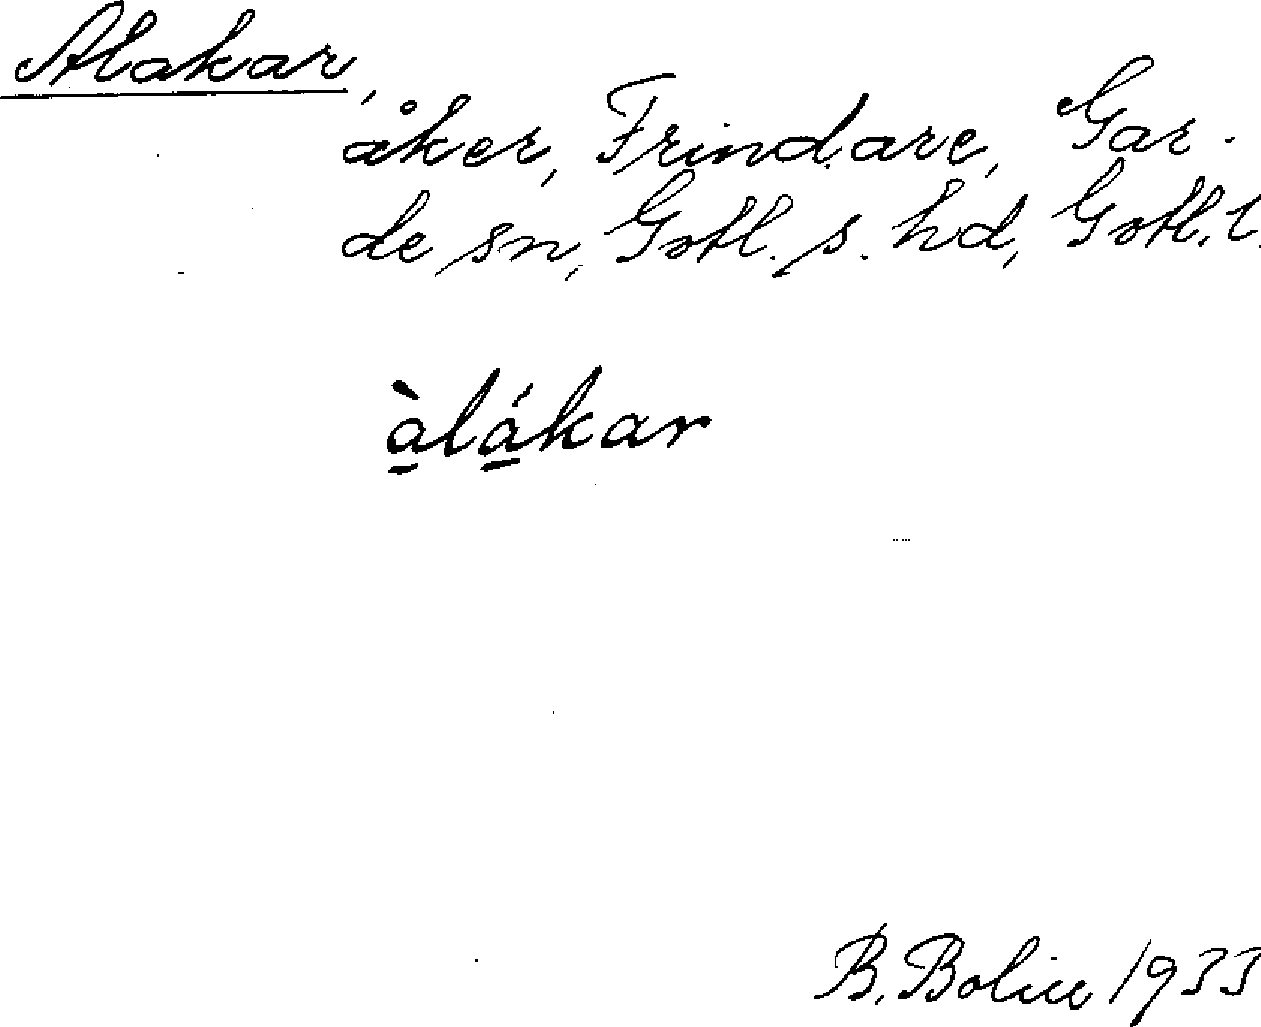 Alakar,
åker, Frindare, Gar-
de sn, Gotl. s. hd, Gotl. l.
à̱lá̱kar
B. Bolin 1933